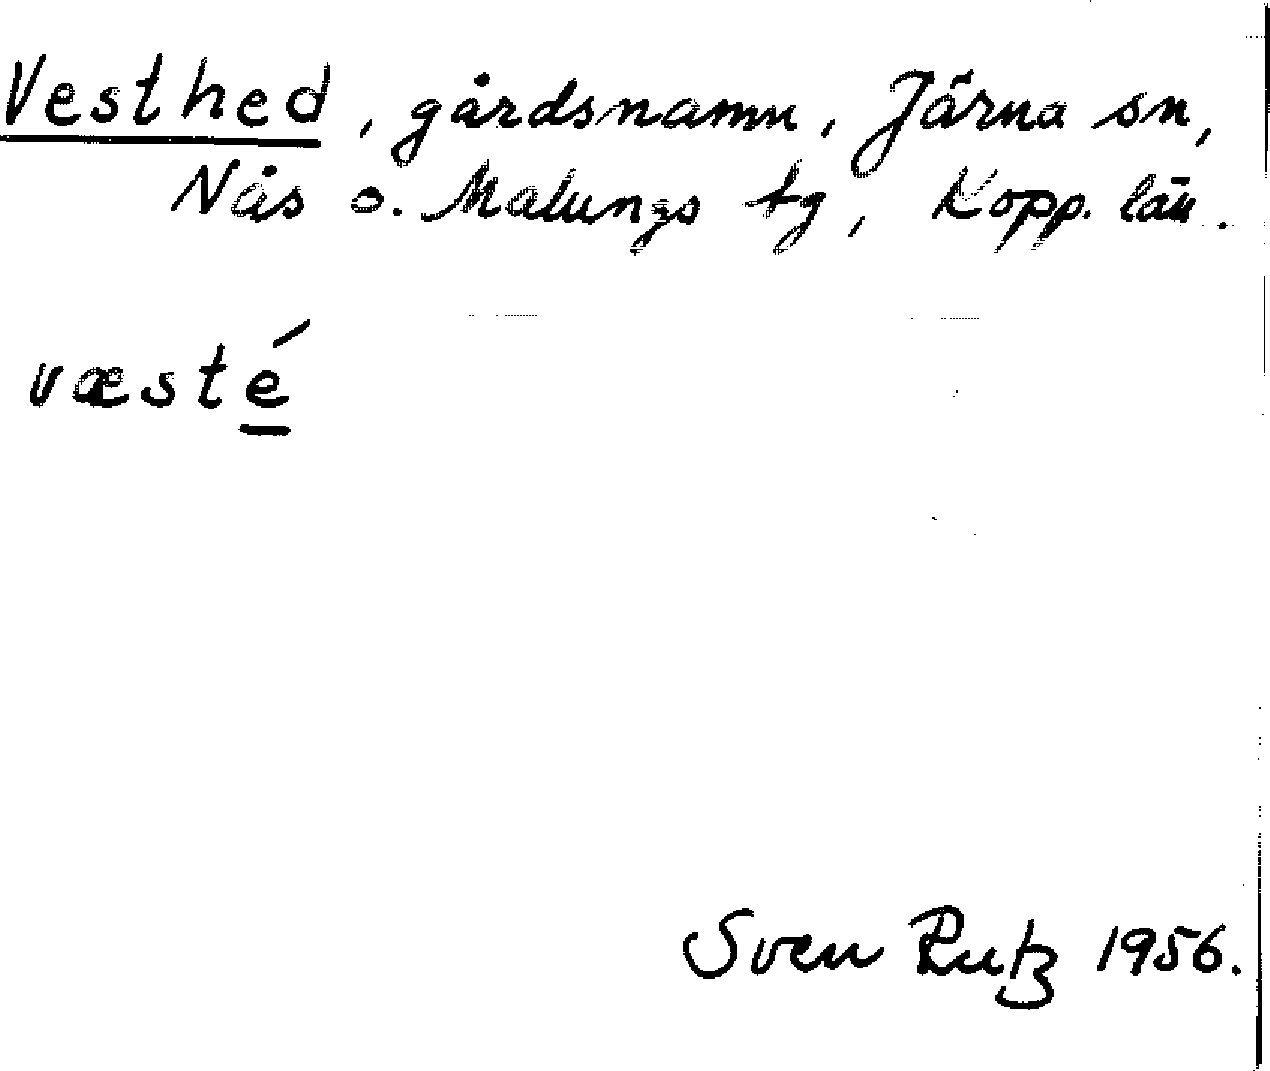 Vesthed, gårdsnamn, Järna sn,
Nås o. Malungs tg, Kopp. län.
væsté
Sven Rutz 1956.